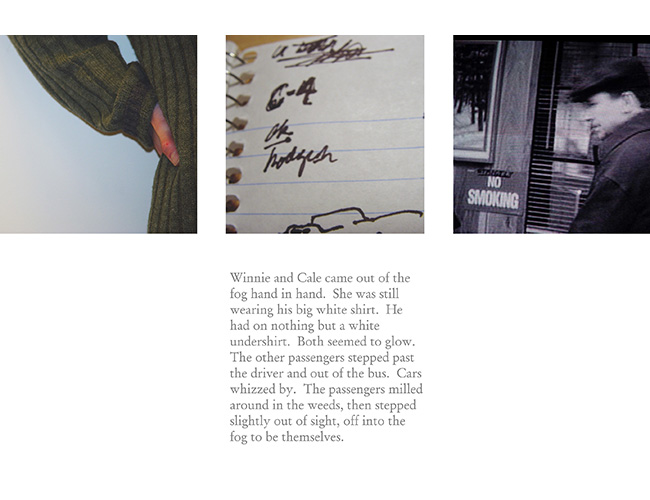 6-4
NO
SMOKING
Winnie and Cale came out of the
fog hand in hand.  She was still
wearing his big white shirt.  He
had on nothing but a white
undershirt.  Both seemed to glow.
The other passengers stepped past
the driver and out of the bus.  Cars
whizzed by.  The passengers milled
around in the weeds, then stepped
slightly out of sight, off into the
fog to be themselves.